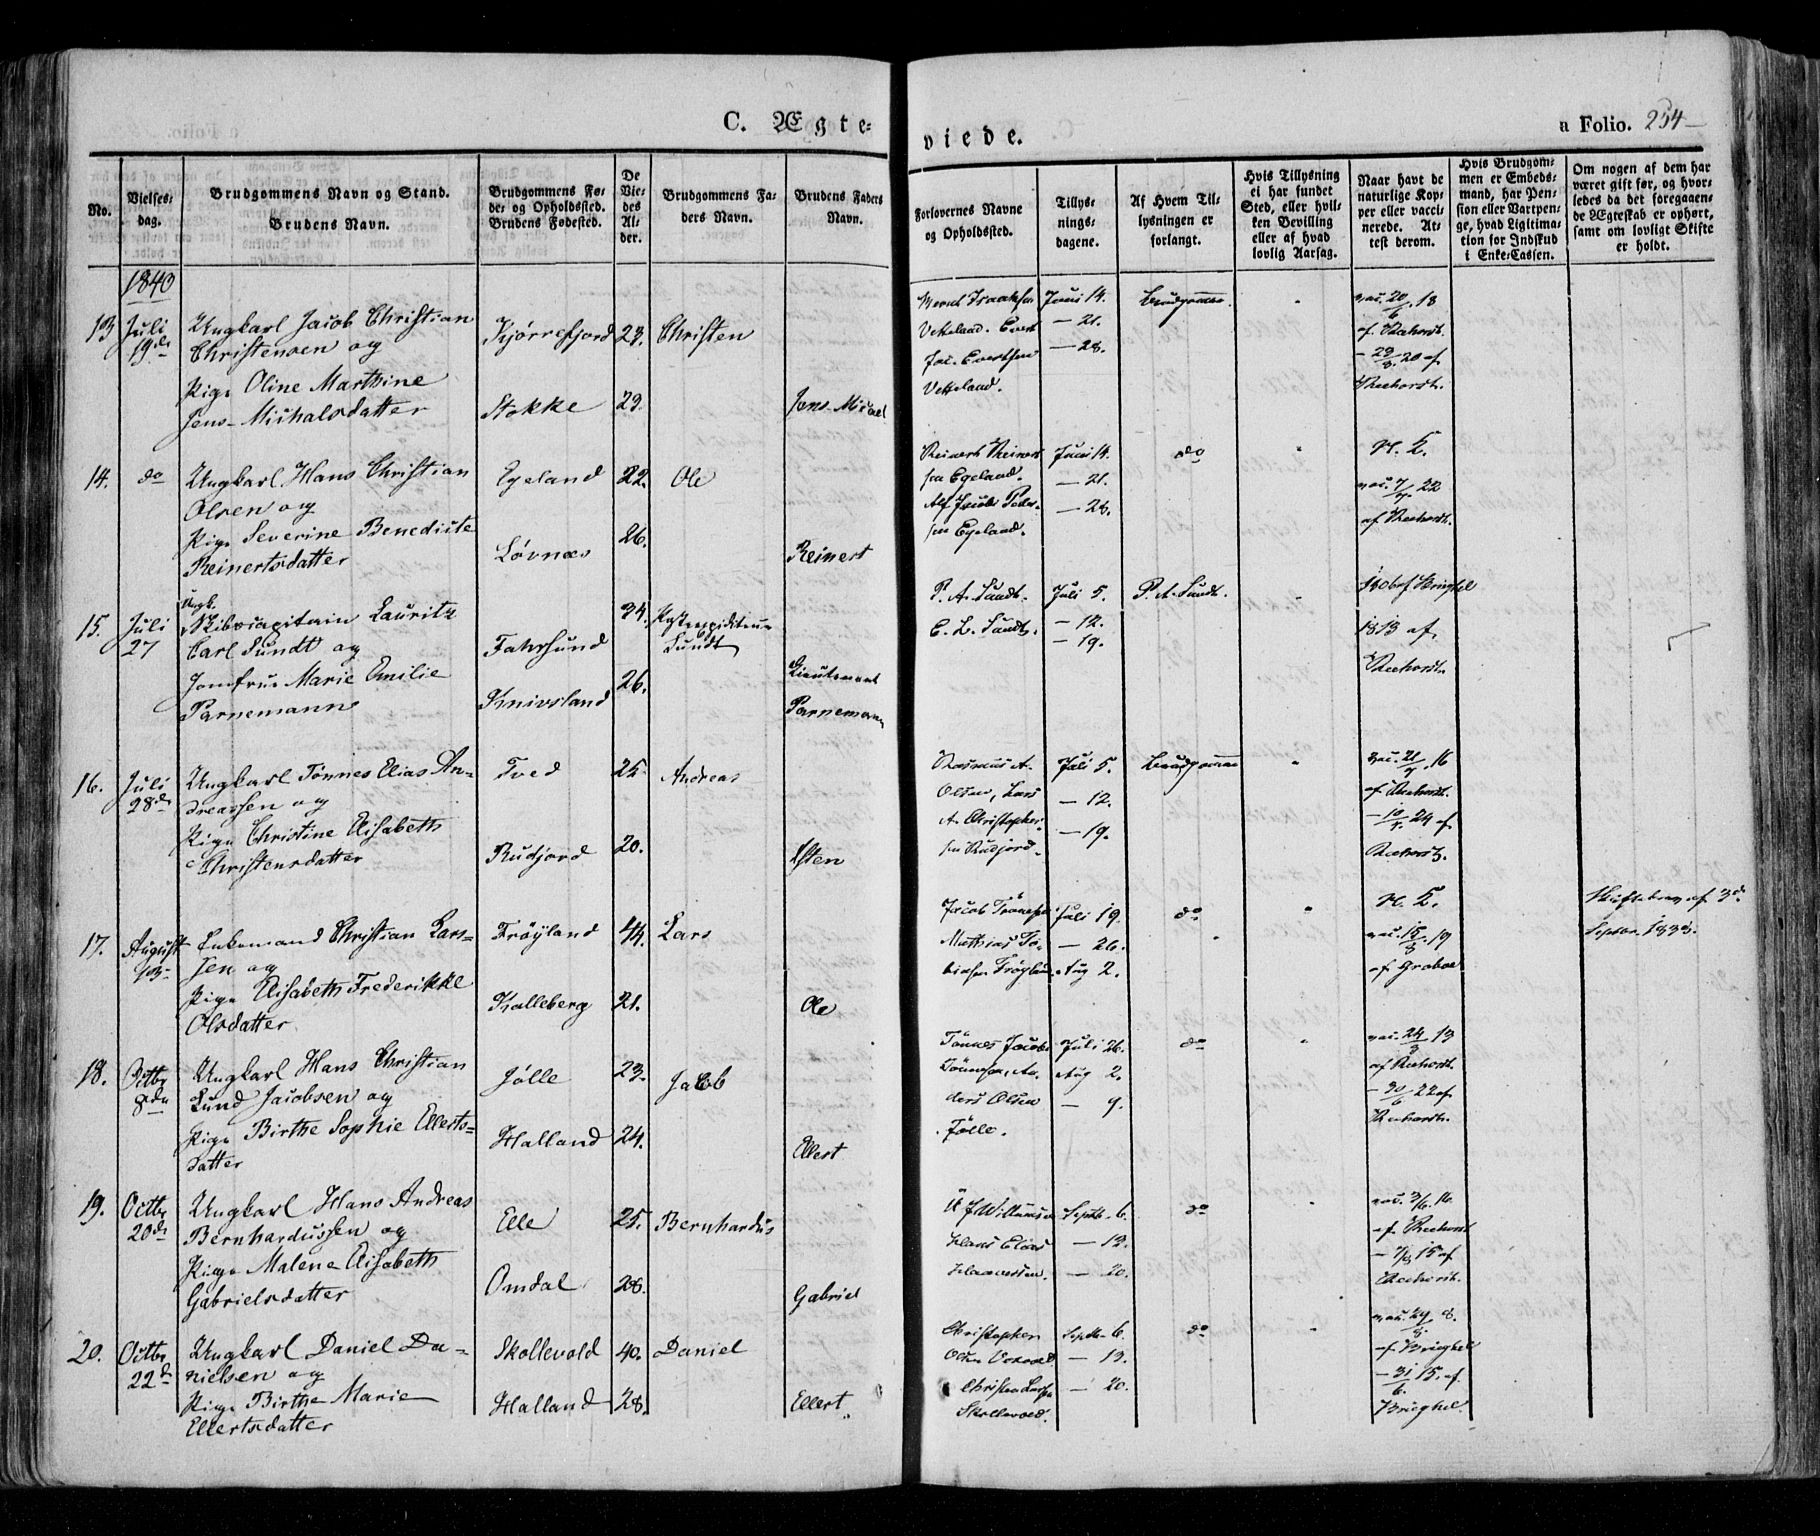 C. Ægte-
viede.
a Folio. 254
No.
Vielses-
dag.
Brudgommens Navn og Stand.
Brudens Navn.
Brudgommens Fø-
de- og Opholdssted.
Brudens Fødested.
De
Vie-
des
Al-
der.
Brudgommens Fa-
ders Navn.
Brudens Faders
Navn.
Forlovernes Navne
og Opholdssted.
Tillys-
nings-
dagene.
Af Hvem Til-
lysningen er
forlangt.
Hvis Tillysning
ei har fundet
Sted, eller hvil-
ken Bevilling
eller af hvad
lovlig Aarsag.
Naar havt de
naturlige Kop-
per eller vacci-
nerede. At-
test derom.
Hvis Brudgom-
men er Embeds-
mand, har Pen-
sion eller Vartpen-
ge, hvad Ligitima-
tion for Indskud
i Enke-Cassen.
Om nogen af dem har
været gift før, og hvor-
ledes da det foregaaen-
de Ægteskab er ophørt,
samt om lovligt Skifte
er holdt.
1840
13 Juli 19de
Ungkarl Jacob Christian
Christensen og
Pige Oline Marthine
Jens-Michalsdatter
Kjørrefjord 23. Christen
Stokke 29. Jens-Micael
Vekeland. Evert
Jac. Evertsen
Vetteland.
Juni 14.
— 21.
— 28.
Brudgommen
vac. 20/6 18
af Reehorst.
— 29/8 20 af
Reehorst.
14. do
Ungkarl Hans Christian
Olsen og
Pige Severine Benedicte
Reinertsdatter
Egeland 22. Ole
Løvnæs 26. Reinert
Reinert Reinert-
sen Egeland.
Alf Jacob Peder-
sen Egeland.
Juni 14.
— 21.
— 28.
do
N. 5.
vac. 7/7 22
af Reehorst.
15. Juli 27
Ungk.
Skibscapitain Lauritz
Carl Sundt og
Jomfrue Marie Emilie
Parnemann
Fahrsund 34. Sundt
Knivsland 26. Lieutenant
Parnemann
P. A. Sundt.
E. L. Sundt.
Juli 5.
— 12.
— 19.
P. A. Sundt.
1813 af
Reehorst.
16. Juli 28de
Ungkarl Tönnes Elias An-
dreassen og
Pige Christine Elisabeth
Christensdatter
Tved 25. Andreas
Rudjord 20. Isten
Rasmus A.
Olsen, Lars
A. Christopher-
sen Rudjord.
Juli 5.
— 12.
— 19.
Brudgommen
vac. 21/7 16
af Reehorst.
— 10/7 24 af
Reehorst.
17. August 13
Enkemand Christian Lars-
sen og
Pige Elisabeth Frederikke
Olsdatter
Frøyland 44. Lars
Kalleberg 21. Ole
Jacob Tönnesen
Mathias To-
biasen Frøyland.
Juli 19.
— 26.
Aug 2.
do
N. 5.
vac. 15/8 19
af Graboe
Skiftebrev af 3de
Septbr. 1838.
18. Octbr 8de
Ungkarl Hans Christian
Lund Jacobsen og
Pige Birthe Sophie Ellerts-
datter
Jølle 23. Jacob
Halland 24. Ellert
Tönnes Jacob
Tönnesen, An-
ders Olsen
Jølle.
Juli 26.
Aug 2.
— 9.
do
vac. 24/9 13
af Reehorst.
— 30/6 22 af
Reehorst.
19. Octbr 20de
Ungkarl Hans Andreas
Bernhardussen og
Pige Malene Elisabeth
Gabrielsdatter
Elle 25. Bernhardus
Omdal 28. Gabriel
Hans Elias
Septbr 6.
— 13.
— 20.
do
vac. 3/6 16
af Reehorst
— 7/8 15 af
Reehorst.
20. Octbr 22de
Ungkarl Daniel Da-
nielsen og
Pige Birthe Marie
Ellertsdatter
Skollevold 40. Daniel
Halland 28. Ellert.
Christopher
Christen Larsen
Skollevold.
Septbr 6.
— 13.
— 20.
do
vac. 29/8 8.
af Brieghel
— 31/6 15. af
Brieghel.